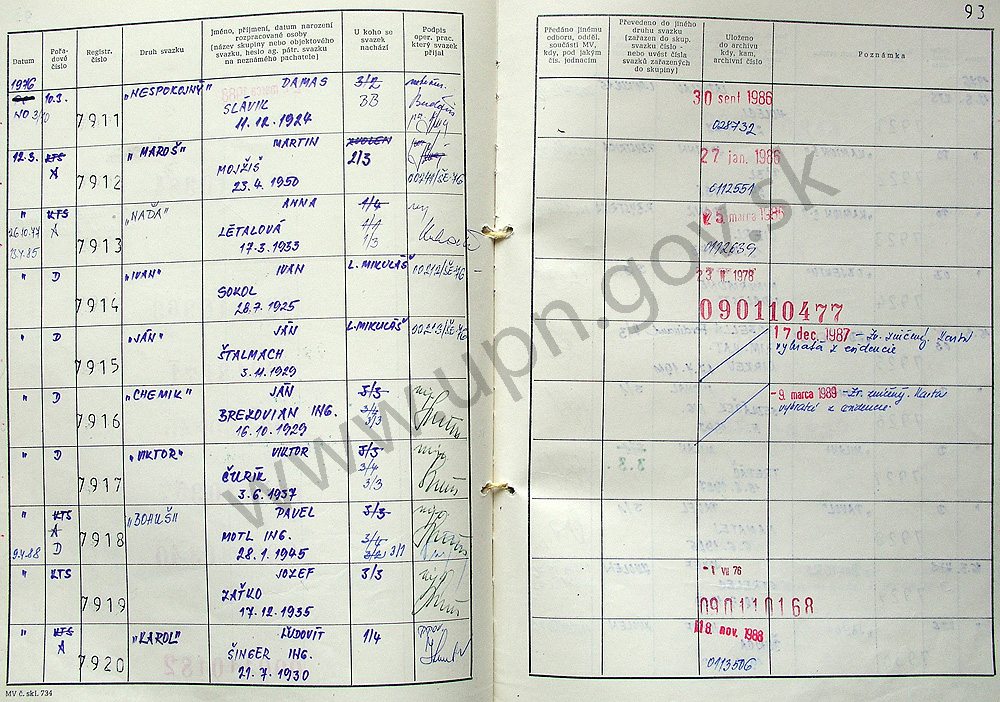 93
Datum
Pořadové číslo
Registr. číslo
Druh svazku
Jméno, příjmení, datum narození rozpracované osoby (název skupiny nebo objektového svazku, heslo ag. pátr. svazku na neznámého pachatele)
U koho se svazek nachází
Podpis oper. prac. který svazek přijal
Předáno jinému odboru, odděl. součásti MV, kdy, pod jakým čís. jednacím
Převedeno do jiného druhu svazku (zařazen do skup. svazku číslo - nebo uvést čísla svazků zařazených do skupiny)
Uloženo do archivu kdy, kam, archivní číslo
Poznámka
1976 10.3. 7911 „NESPOKOJNÝ" DAMAS
SLÁVIK
11.12.1924
3/2
BB
30 sept 1986
028732
12.3. KTS A 7912 „MAROŠ" MARTIN
MOJŽIŠ
23.4.1950
ZVOLEN
2/3
00211/ŠE-76
27 jan. 1986
0112551
" KTS A 7913 „NAĎA" ANNA
26.10.77
13.4.85
LÉTALOVÁ
17.3.1933
1/4
1/1
1/3
25 marca 1986
0112639
" D 7914 „IVAN" IVAN
SOKOL
28.7.1925
L. MIKULÁŠ
00212/ŠE-76
23. II. 1978
090110477
" D 7915 „JÁN" JÁN
ŠTALMACH
3.11.1929
L.MIKULÁŠ
00213/ŠE-76
17 dec. 1987 - Zv. zničený, karta
vybratá z evidencie
" D 7916 „CHEMIK" JÁN
BREZOVIAN ING.
16.10.1929
3/3
3/4
3/3
- 9. marca 1989 - Zv. zničený. Karta
vybratá z evidencie
" D 7917 „VIKTOR" VIKTOR
ČURÍK
3.6.1937
3/3
3/4
3/3
" KTS A D 7918 „BOHUŠ" PAVEL
9.4.88
MOTL ING.
28.1.1945
3/3
3/4
3/2 3/1
" KTS 7919 JOZEF
ZAŤKO
17.12.1935
3/3
- 1 VII 76
090110168
" KTS A 7920 „KAROL" ĽUDOVÍT
ŠINGER ING.
21.7.1930
1/4
18. nov. 1988
0113506
MV č. skl. 734
www.upn.gov.sk